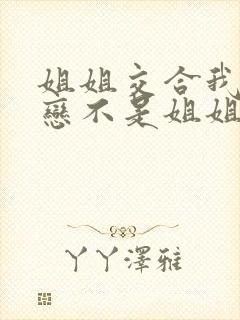 姐姐交合我
戀不是姐姐
丫丫澤雅